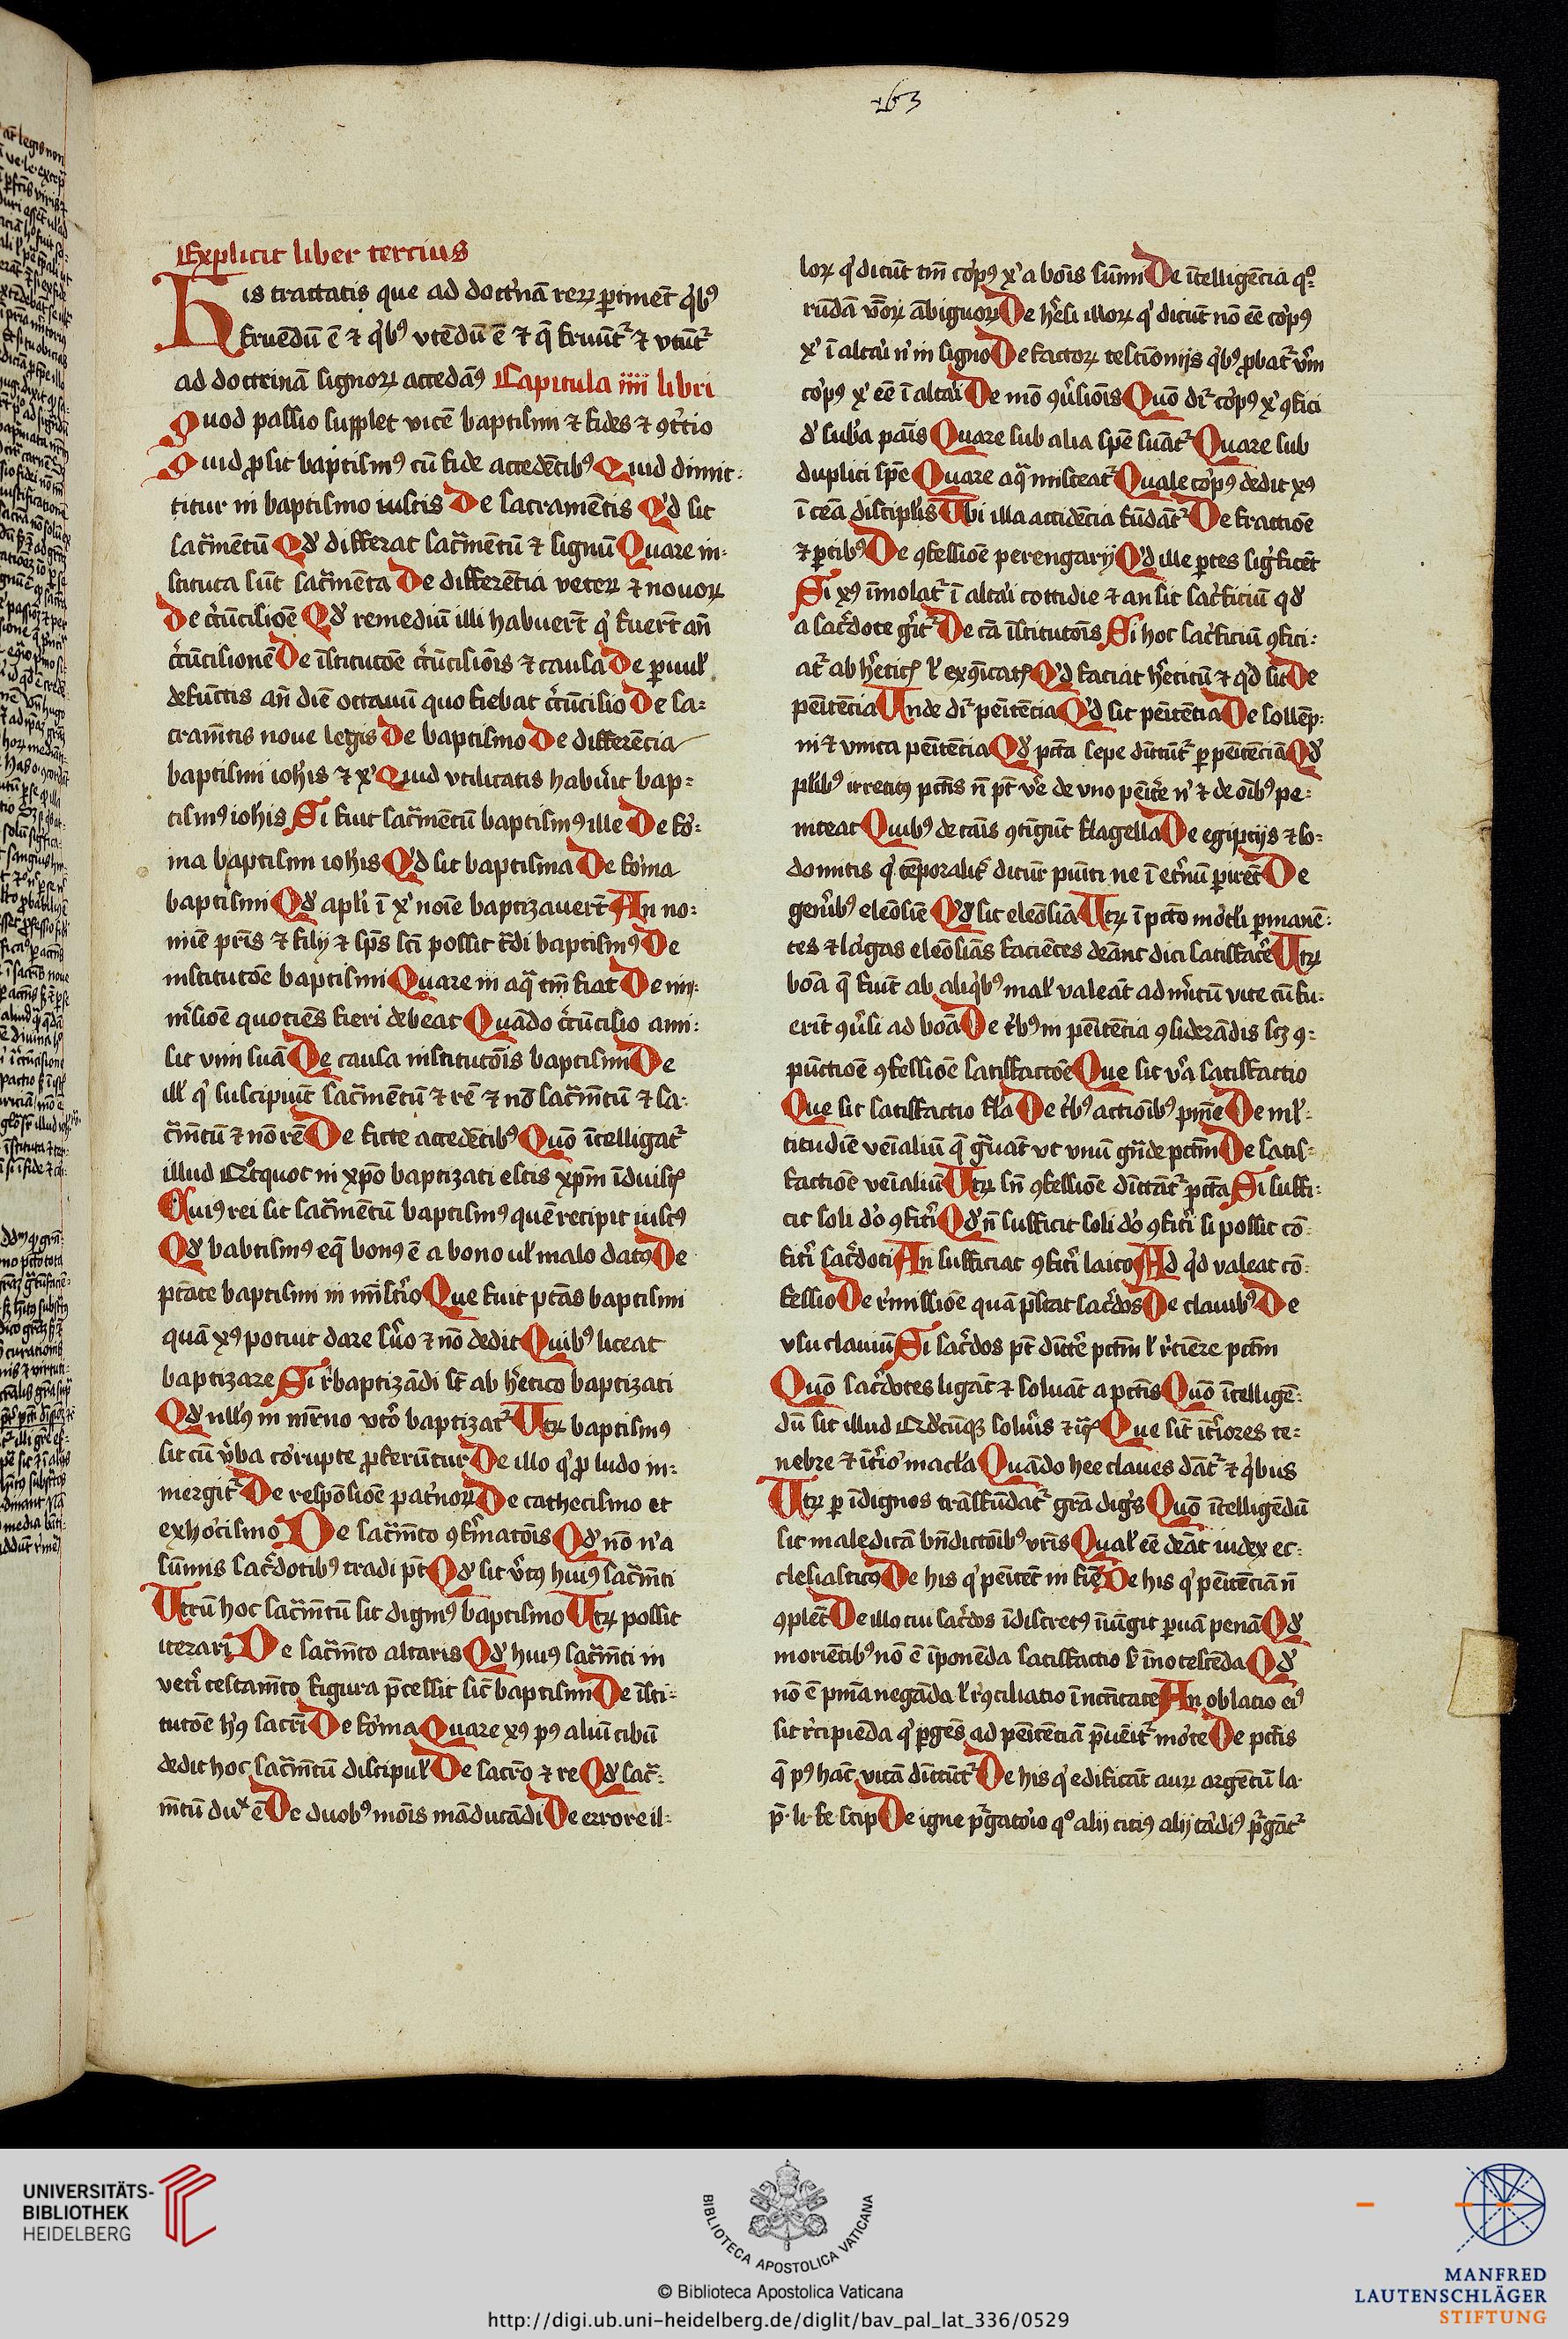 263
Explicit liber tercius
His tractatis que ad doct'nā reꝝ ꝑtinēt qͥbꝰ
fruēdū ē ⁊ qͥbꝰ vtēdū ē ⁊ q̄ fruūt᷑ ⁊ vtūt᷑
ad doctrinā signoꝝ accedāꝰ Capitula iiii libri
Quod passio supplet vicē baptismi ⁊ fides ⁊ ꝯt'tio
Quid ꝓsit baptismꝰ cū fide accedētibꝰ Quid dimit-
titur in baptismo iustis De sacramētis Qͥd sit
sac᷑mētū Qd' differat sac᷑mētū ⁊ signū Quare in-
stituta sūt sac᷑mēta De differētia veteꝝ ⁊ novoꝝ
De c᷑cūcisiōe Qd' remediū illi habuer̄t qͥ fuer̄t an̄
c᷑cūcisionē De īstitutōe c᷑cūcisiōis ⁊ causa De ꝑvul'
defūctis an̄ diē octavū quo fiebat c᷑cūcisio De sa-
cram̄tis nove legis De baptismo De differēcia
baptismi ioh'is ⁊ x' Quid vtilitatis habu'it bap-
tismꝰ ioh'is Si fuit sac᷑mētū baptismꝰ ille De fo'-
ma baptismi ioh'is Qͥd sit baptisma De fo'ma
baptismi Qd' apl'i ī x' noīe baptizaver̄t An no-
mīe pr̄is ⁊ filij ⁊ sp̄s sc̄i possit t᷑di baptismꝰ De
institutōe baptismi Quare in aq̄ tm̄ fiat De im-
m'siōe quociēs fieri debeat Quādo c᷑cūcisio ami-
sit vim suā De causa institutōis baptismi De
ill' qͥ suscipiūt sac᷑mētū ⁊ rē ⁊ nō sac᷑m̄tū ⁊ sa-
c᷑m̄tū ⁊ nō rē De ficte accedētibꝰ Quō ītelligat᷑
illud Qͦtquot in xp̄o baptizati estis xp̄m īduistꝭ
Cuiꝰ rei sit sac᷑mētū baptismꝰ quē recipit iustꝰ
Qd' babtismꝰ eq̄ bonꝰ ē a bono ul' malo datꝰ De
ptāte baptismi in mīst'io Que fuit ptās baptismi
quā xꝰ potuit dare s'vo ⁊ nō dedit Quibꝰ liceat
baptizare Si r'baptizādi st̄ ab h'etico baptizati
Qd' ullꝰ in mr̄no vt'o baptizat᷑ Utꝝ baptismꝰ
sit cū v'ba corrupte ꝓferūtur De illo qͥ ꝓ ludo im-
mergit᷑ De respōsiōe pat'noꝝ De cathecismo et
exho'cismo De sac᷑m̄to ꝯf'matōis Qd' nō n'a
sūmis sac᷑dotibꝰ tradi pt̄ Qd' sit v'tꝰ huiꝰ sac᷑m̄ti
Utrū hoc sac᷑m̄tū sit dignꝰ baptismo Utꝝ possit
iterari De sac᷑m̄to altaris Qd' huiꝰ sac᷑m̄ti in
vet'i testam̄to figura p̄cessit sic̄ baptismi De īsti-
tutōe hꝰ sacr̄i De fo'ma Quare xꝰ pꝰ aliū cibū
dedit hoc sac᷑m̄tū discipul' De sacr̄o ⁊ re Qd' sac᷑-
m̄tū du'x ē De duobꝰ mōis māducādi De errore il-
loꝝ qͥ dicūt tm̄ co'pꝰ x' a bōis sūmi De ītelligēcia qͦ-
rūdā v'boꝝ ābiguoꝝ De h'esi illoꝝ qͥ dicūt nō eē co'pꝰ
x' ī alta'i n' in signo De s'ctoꝝ testiōnijs qͥbꝰ ꝓbat᷑ v'm
co'pꝰ x' eē ī alta'i De mō ꝯu'siōis Quō dr̄ co'pꝰ x' ꝯfici
d' sub'a pāis Quare sub alia spē sūat᷑ Quare sub
duplici spē Quare aq̄ misceat᷑ Quale co'pꝰ dedit xꝰ
ī cēa discipl'is Ubi illa accidēcia fūdāt᷑ De fractiōe
⁊ ꝑtibꝰ De ꝯfessiōe perengarij Qͥd ille ꝑtes sig'ficēt
Si xꝰ īmolat᷑ ī alta'i cottidie ⁊ an sit sac'ficiū qd'
a sac᷑dote g'it᷑ De cā īstitutōis Si hoc sac'ficiū ꝯfici-
at᷑ ab h'eticꝭ l' exꝯīcatꝭ Qͥd faciat h'eticū ⁊ qͥd sit De
penītēcia Unde dr̄ penītēcia Qͥd sit penītēcia De sollēp-
ni ⁊ vnica penītēcia Qd' pctā sepe dīttūt᷑ ꝑ penītēciā Qd'
pl'ibꝰ irretitꝰ pctīs n̄ pt̄ v'e de vno penit'e n' ⁊ de oībꝰ pe-
niteat Quibꝰ de cāis ꝯtīgūt flagella De egiptijs ⁊ so-
domitis qͥ tēporalit' dicūt᷑ pūiti ne ī et'nū ꝑirēt De
gen'ibꝰ eleōsiē Qd' sit eleōsiā Utꝝ ī pctō mo'tl'i ꝑmanē-
tes ⁊ la'gas eleōsiās faciētes deānt dici satisfac'e Utꝝ
bōa q̄ fiūt ab aliqͥbꝰ mal' valeāt ad m'itū vite cū fu-
erīt ꝯu'si ad boā De t'bꝰ in penītēcia ꝯsiderādis scꝫ ꝯ-
pūctiōe ꝯfessiōe satisfactōe Que sit v'a satisfactio
Que sit satisfactio fl'a De t'bꝰ actiōibꝰ pn̄ie De ml'-
titudīe veīaliū q̄ g'vāt vt vnū g'nde pctm̄ De satis-
factiōe veīaliū Utꝝ sn̄ ꝯfessiōe dīttāt᷑ pctā Si suffi-
cit soli d'o ꝯfit'i Qd' n̄ sufficit soli d'o ꝯfit'i si possit cō-
fit'i sac᷑doti An sufficiat ꝯfit'i laico Ad qͥd valeat cō-
fessio De r'missiōe quā p̄stat sac᷑dos De clavibꝰ De
vsu claviū Si sac᷑dos pt̄ dītt'e pctm̄ l' r'tiēre pctm̄
Quō sac᷑dotes ligāt ⁊ soluāt a pctīs Quō ītelligē-
dū sit illud Qd'cūqꝫ solu'is ⁊ ꝯ Que sīt īt'iores te-
nebre ⁊ īt'io' macl'a Quādo hee claves dāt᷑ ⁊ qͥbus
Utꝝ ꝑ īdignos trāsfūdat᷑ gr̄a dig's Quō ītelligēdū
sit maledicā bn̄dictōibꝰ vr̄is Qual' eē deāt iudex ec-
clesiasticꝰ De his qͥ penītēt in fiē De his qͥ penītēciā n̄
ꝯplēt De illo cui sac᷑dos īdiscretꝰ īiūgit ꝑvā penā Qd'
moriētibꝰ nō ē īponēda satisfactio s' īnotescēda Qd'
nō ē pn̄ia negāda l' r'ꝯciliatio ī nctītate An oblatio eiꝰ
sit r'cipiēda qͥ ꝑgēs ad penītēciā p̄ueīt᷑ mo'te De pctīs
q̄ pꝰ hāc vitā dīttūt᷑ De his qͥ edificāt auꝝ argētū la-
p̄ li fe stip De igne p'gato'io qͦ alij citiꝰ alij ta'diꝰ p'gāt᷑
UNIVERSITÄTS-
BIBLIOTHEK
HEIDELBERG
BIBLIOTECA APOSTOLICA VATICANA
© Biblioteca Apostolica Vaticana
http://digi.ub.uni-heidelberg.de/diglit/bav_pal_lat_336/0529
MANFRED
LAUTENSCHLÄGER
STIFTUNG